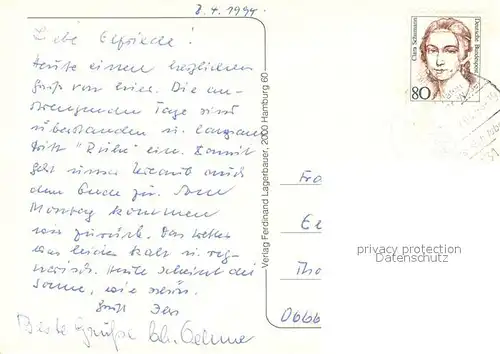 8.4.1994
Liebe Elfriede!
Heute einen herzlichen
Gruß von hier. Die an-
strengenden Tage sind
überstanden u. langsam
tritt "Ruhe" ein. Damit
geht unser Urlaub auch
dem Ende zu. Am
Montag kommen
wir zurück. Das Wetter
war leider kalt u. reg-
nerisch. Heute scheint die
Sonne, wie schön.
Gruß
Beste Grüße
Verlag Ferdinand Lagerbauer, 2000 Hamburg 60
Clara Schumann
Deutsche Bundespost
80
Fra
El
Tho
0666
privacy protection
Datenschutz